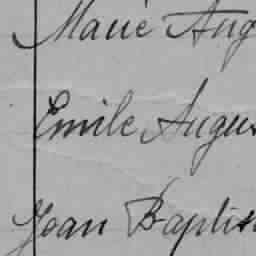 Marie Aug
Emile Augus
Jean Baptis